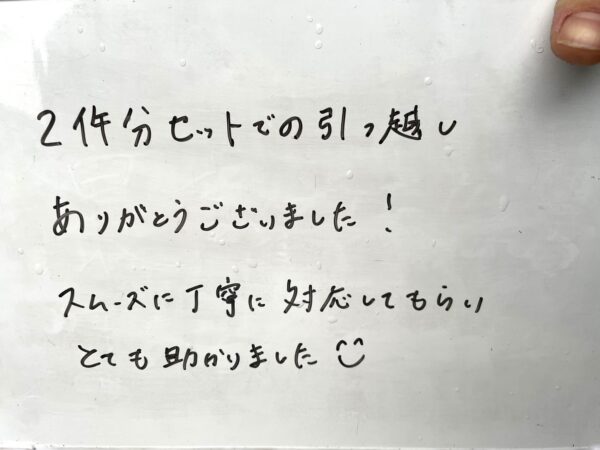 2件分セットでの引っ越し
ありがとうございました！
スムーズに丁寧に対応してもらい
とても助かりました